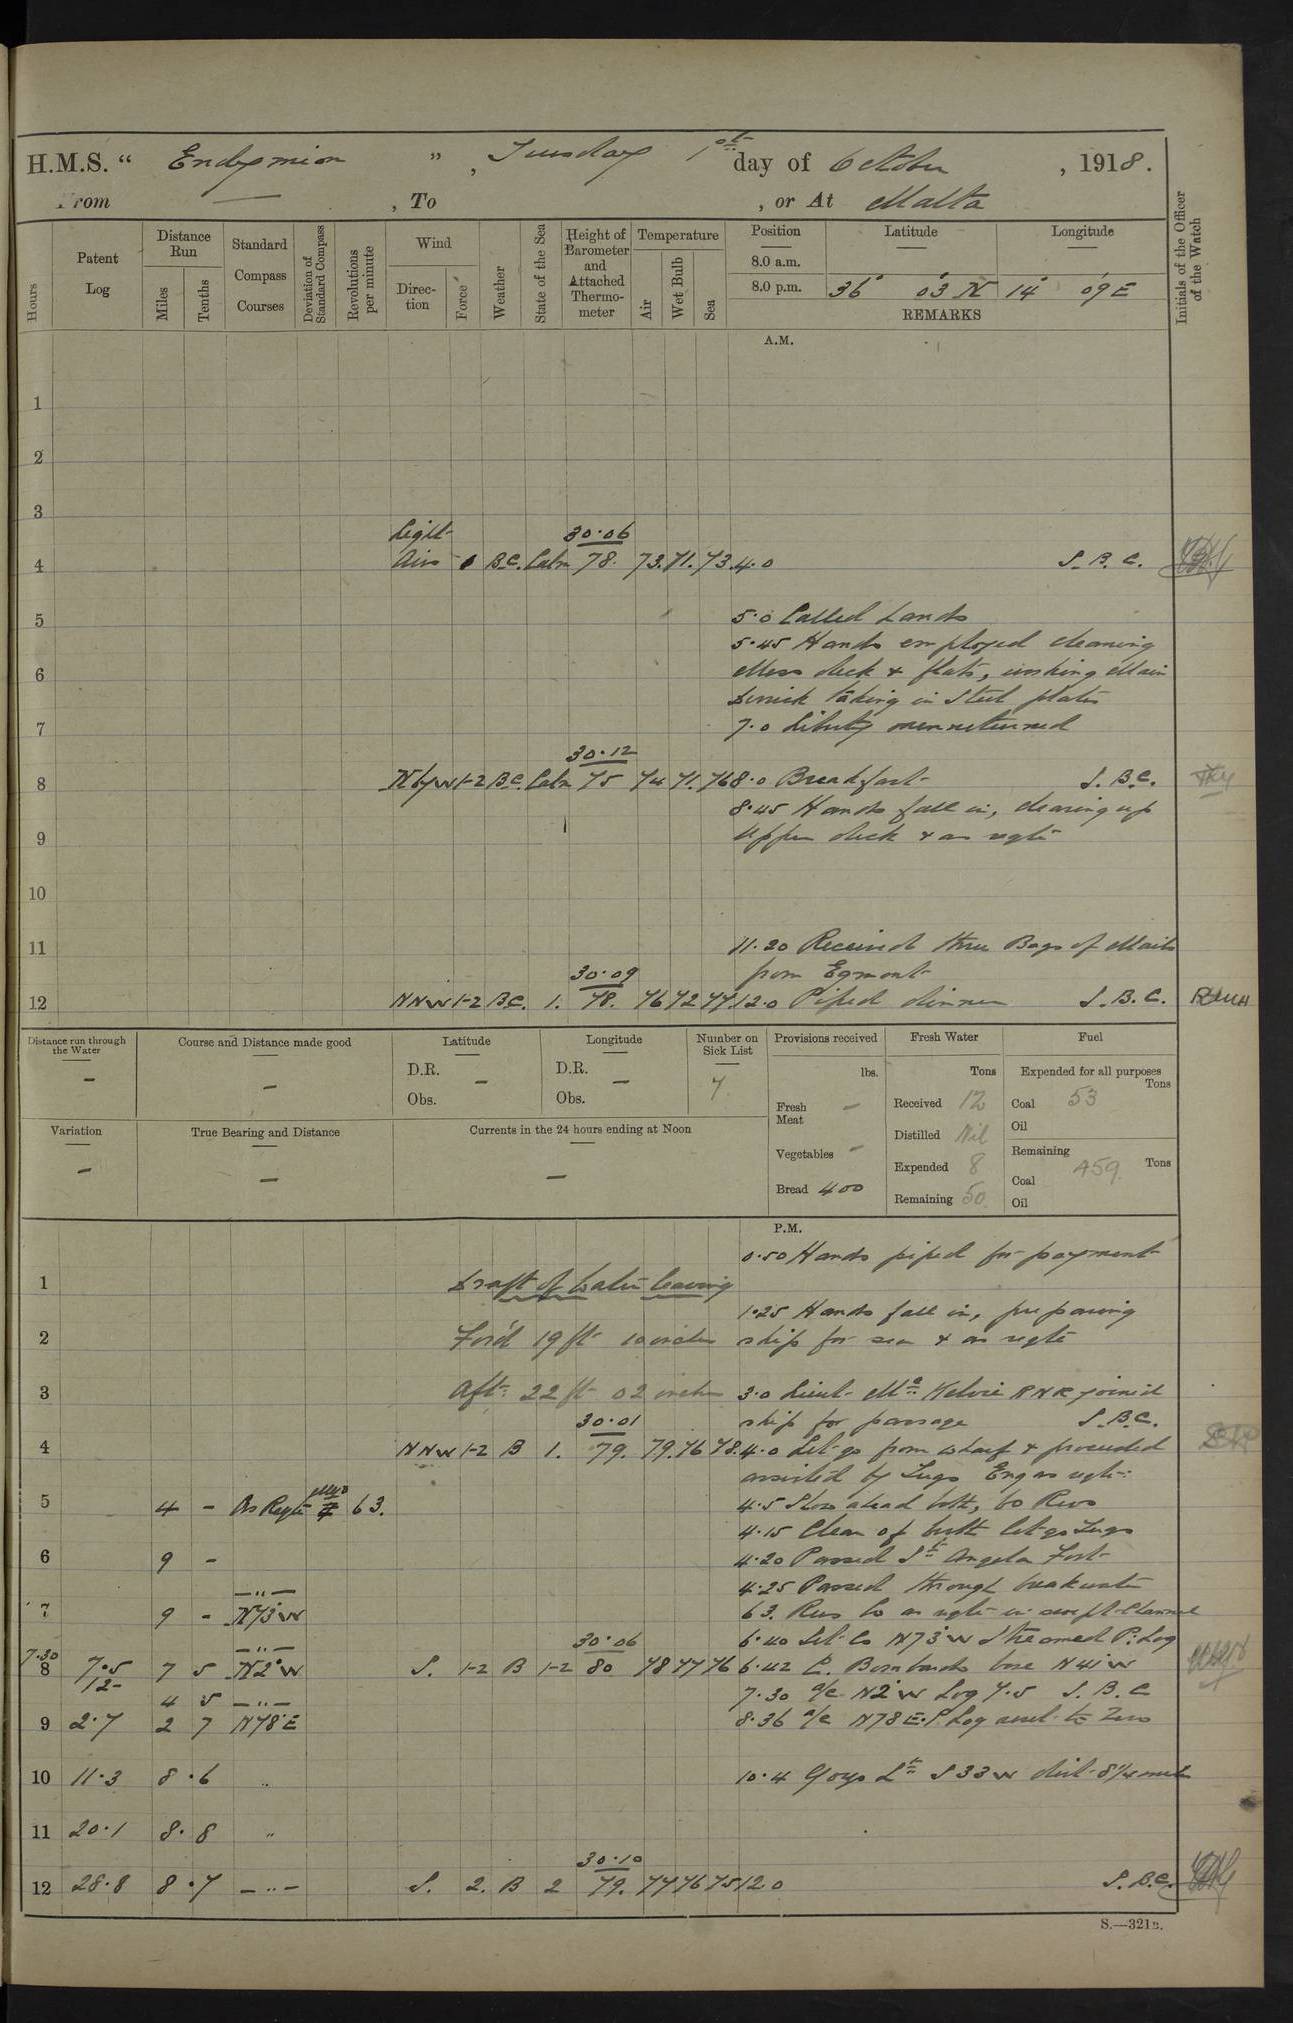 H.M.S. " Endymion ", Tuesday 1st day of October, 1918.
From — , To , or At Malta
Hours
Patent Log
Distance Run
Miles
Tenths
Standard Compass Courses
Deviation of Standard Compass
Revolutions per minute
Wind
Direction
Force
Weather
State of the Sea
Height of Barometer and Attached Thermometer
Temperature
Air
Wet Bulb
Sea
Position
8.0 a.m.
8.0 p.m.
Latitude
36° 03 N
Longitude
14° 09 E
REMARKS
Initials of the Officer of the Watch
A.M.
1
2
3
Light 30.06
4 Airs B.C. Calm 78. 73. 71. 73. 4.0 S.B.C.
5 5.0 Called hands
5.45 Hands employed cleaning
6 Mess deck & flats, working Main
derrick taking in steel plates
7 7.0 Liberty men returned
30.12
8 N by W 1-2 B.C. Calm 75 74 71. 76 8.0 Breakfast S.B.C.
8.45 Hands fall in, clearing up
9 Upper deck & as reqte
10
11 11.20 Received three Bags of Mails
30.09 from Egmont
12 NNW 1-2 BC. 1. 78. 76 72 77 12.0 Piped dinner S.B.C.
Distance run through the Water
—
Course and Distance made good
—
Latitude
D.R. —
Obs.
Longitude
D.R. —
Obs.
Number on Sick List
7.
Provisions received
lbs.
Fresh Meat —
Vegetables —
Bread 400
Fresh Water
Tons
Received 12
Distilled Nil
Expended 8
Remaining 50
Fuel
Expended for all purposes
Tons
Coal 53
Oil
Remaining
Tons
Coal 459
Oil
Variation
—
True Bearing and Distance
—
Currents in the 24 hours ending at Noon
—
P.M.
0.50 Hands piped for payment
1 Draft of Water leaving
1.25 Hands fall in, preparing
2 For'd 19 ft 10 inches ship for sea & as reqte
3 Aft: 22 ft 02 inches 3.0 Lieut. Mc Kelvie RNR joined
30.01 ship for passage S.B.C.
4 NNW 1-2 B 1. 79. 79. 76 78. 4.0 Let go from wharf & proceeded
assisted by Tugs Eng as reqte:
5 4 - As Reqte 63. 4.5 Slow ahead both, 60 Revs
4.15 Clear of berth let go Tugs
6 9 - 4.20 Passed St Angelo Fort
4.25 Passed through breakwater
— " —
7 9 - N73°W 63. Revs Co as reqte in swept channel
— " — 30.06 6.40 Set Co N73°W Streamed P: Log
7.30
8 7.5 7 5 N2°W S. 1-2 B 1-2 80 78 77 76 6.42 N41°W
12- 4 5 — " — 7.30 a/c N2°W Log 7.5 S.B.C
9 2.7 2 7 N78°E 8.36 a/c N78E. P. Log reset to Zero
10 11.3 8.6 " 10.4 Lt S33W dist 8¼ miles
11 20.1 8.8 "
30.10
12 28.8 8.7 — " — S. 2. B 2 79. 77 76 75 12.0 S.B.C.
S.—321B.